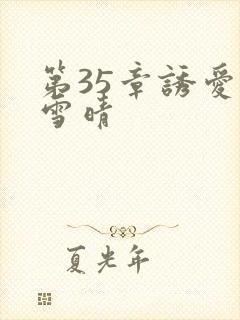 第35章誘愛
雪晴
夏光年